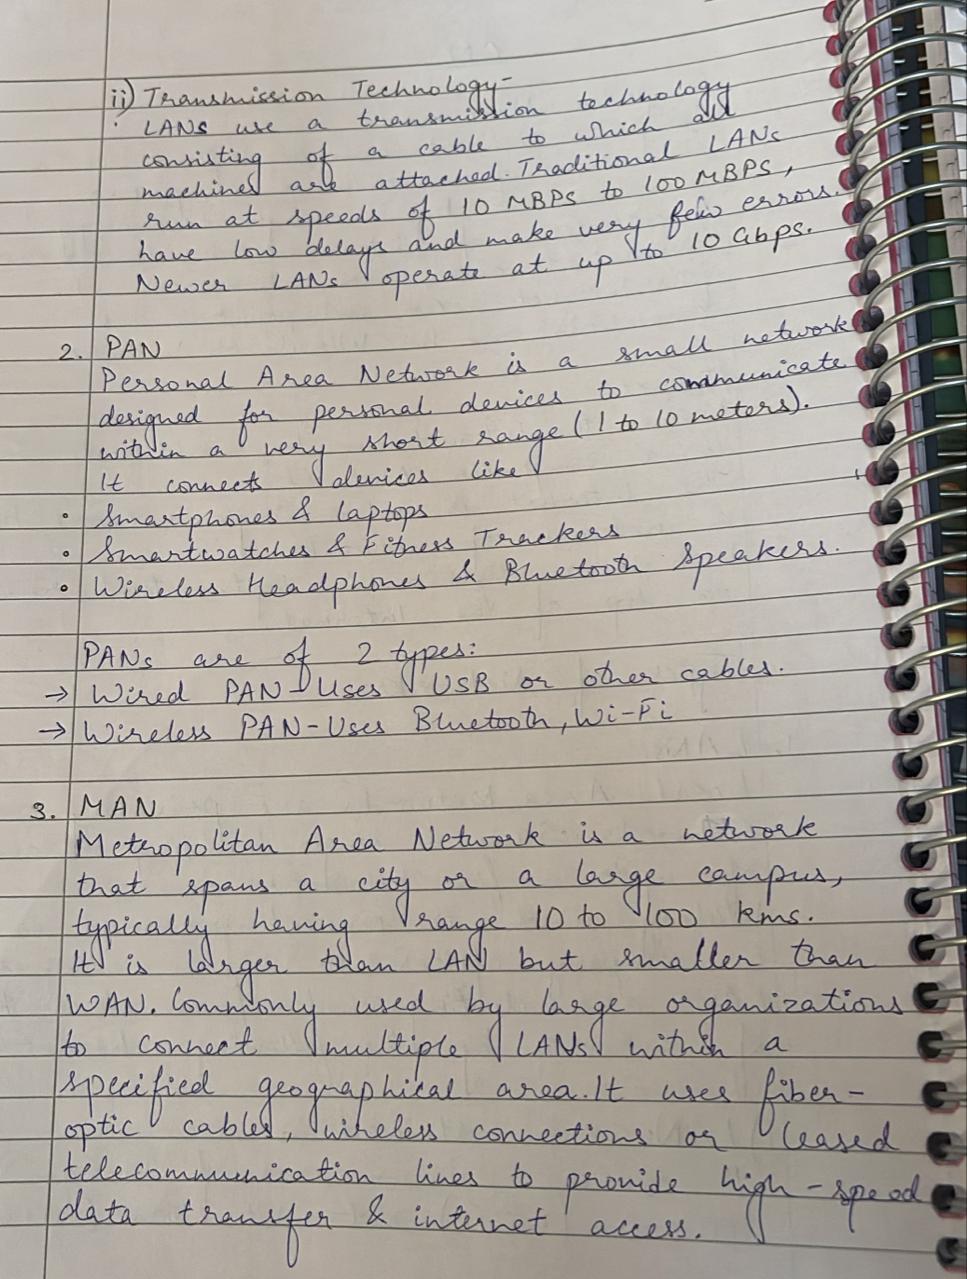 ii) Transmission Technology-
LANs use a transmission technology
consisting of a cable to which all
machines are attached. Traditional LANs
run at speeds of 10 MBPS to 100 MBPS,
have low delays and make very few errors.
Newer LANs operate at up to 10 Gbps.
2. PAN
Personal Area Network is a small network
designed for personal devices to communicate
within a very short range (1 to 10 meters).
It connects devices like
• Smartphones & laptops
• Smartwatches & Fitness Trackers
• Wireless Headphones & Bluetooth Speakers.
PANs are of 2 types:
→ Wired PAN - Uses USB or other cables.
→ Wireless PAN - Uses Bluetooth, Wi-Fi
3. MAN
Metropolitan Area Network is a network
that spans a city or a large campus,
typically having range 10 to 100 kms.
It is larger than LAN but smaller than
WAN. Commonly used by large organizations
to connect multiple LANs within a
specified geographical area. It uses fiber-
optic cables, wireless connections or leased
telecommunication lines to provide high-speed
data transfer & internet access.